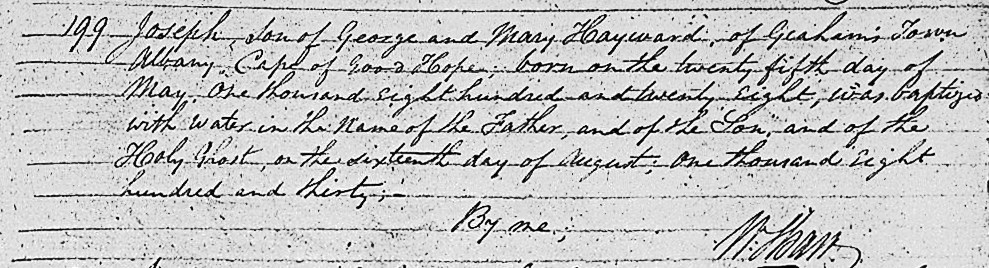 199 Joseph, Son of George and Mary Hayward, of Graham's Town
Albany, Cape of Good Hope; born on the twenty fifth day of
May, One thousand Eight hundred and twenty Eight, was baptized
with Water in the Name of the Father, and of the Son, and of the
Holy Ghost, on the sixteenth day of August; One thousand Eight
hundred and thirty;—
By me;
W. Shaw.